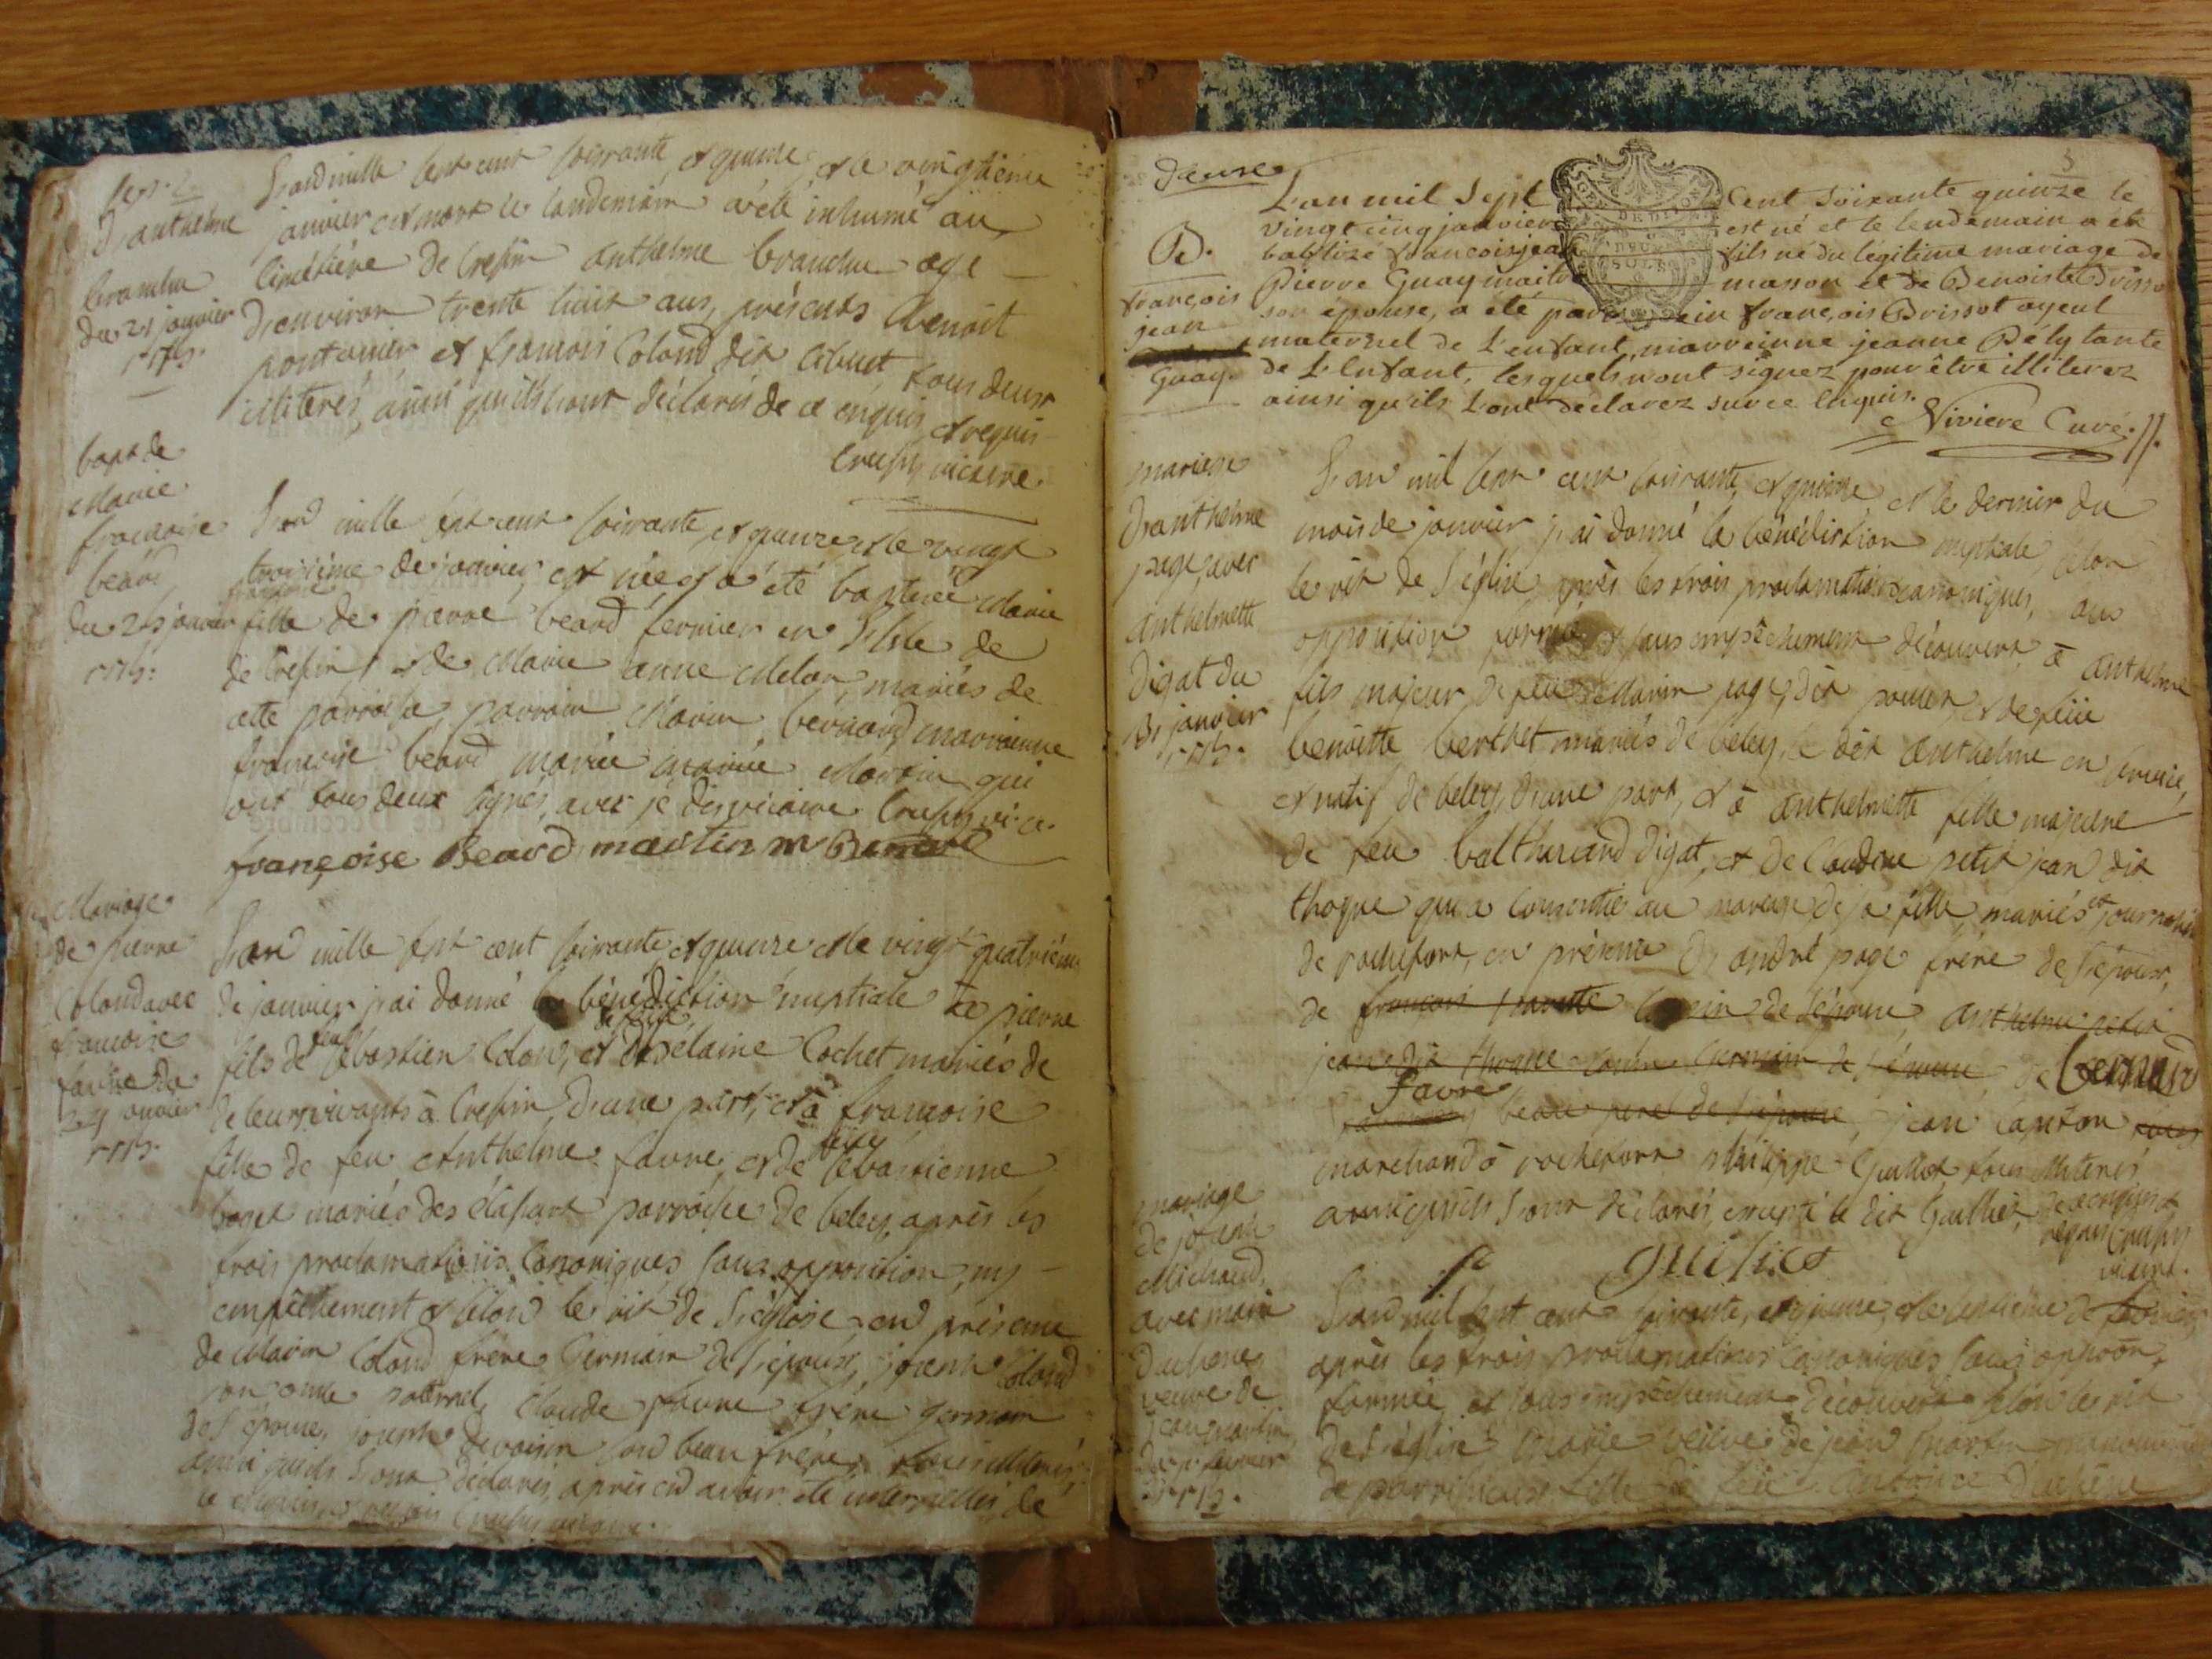 d'anthelme
du 21 janvier
1775.
L'an mille sept cent soixante et quinze et le vingtième
janvier est mort et le landemain a été inhumé au
cimétière de Cressin anthelme brandu agé
d'environ trente huit ans, présents Benoit
pontanier et françois Coland dit Cibuet tous deux
illiterés, ainsi qu'ils l'ont déclarés de ce enquis et requis
Crussy vicaire
bapt de
Marie
francoise
béard
du 23 janvier
1775.
L'an mille sept cent soixante et quinze et le vingt
troisième de janvier, est née et a été baptisée Marie
francoise
fille de pierre béard fermier en l'isle de
de Cressin et de Marie anne Melon, mariés de
cette parroisse, parrain Marin bernard marrainne
francoise béard mariée Martin qui
ont tous deux signés, avec je dis vicaire Crussy vi.re.
françoise Beard martin m Bernard
Mariage
de pierre
Coland avec
francoise
favre du
24 janvier
1775.
L'an mille sept cent soixante et quinze et le vingt quatrième
de janvier j'ai donné la bénédiction nuptiale à pierre
feu
de feüe
fils de sébastien Colon, et de delaine Cochet mariés de
de leurs vivants à Cressin, d'une part, et à francoise
feüe
fille de feu Anthelme favre, et de sébastienne
bornet mariés des élassart parroisse de beley, après les
trois proclamations Canoniques sans opposition, ny
empêchement et selon le rit de l'église en présence
de Marin Coland frère Germain de l'époux, joseph Coland
son oncle paternel, Claude favre frère germain
de l'épouse, joseph devoisin son beau frère, tous illiterés,
ainsi qu'ils l'ont déclarés, après en avoir été interpellés de
ce enquis et requis Crussy vicaire.
deuxe
5
B.
françois
jean
Guay.
L'an mil Sept Cent Soixante quinze le
vingt cinq janvier est né et le lendemain a eté
batisé francois jean fils né du légitime mariage de
Pierre Guay maitre masson et de Benoiste Brisso
son épouse, a eté parrein françois Brissot ayeul
maternel de L'enfant, marreinne jeanne Pély tante
de L'Enfant, lesquels n'ont signez pour être illiterez
ainsi qu'ils L'ont déclarez sur ce Enquis.
Nivière Curé.
mariage
d'anthelme
page, avec
anthelmette
digat du
31 janvier
1775.
L'an mil sept cent soixante et quinze, et le dernier du
mois de janvier j'ai donné la bénédiction nuptiale, selon
le rit de l'église, après les trois proclamations canoniques, au
opposition formée et sans empêchement découvert à anthelme
fils majeur de feu Marin page, dit pomet et de feüe
benoitte berthet mariés de beley, le dit anthelme en service,
et natif de beley, d'une part, et à anthelmette fille majeure
de feu balthazard digat, et de Claudine petit jean dit
thogne qui a consentie au mariage de sa fille, mariés et journaliers
de rochefort, en présence d'andré page frère de l'époux,
de francois Cousin de l'épouse anthelme petit
jean dit thogne cousin Germain de l'épouse de bernard
favre
beau pere de l'épouse, jean Capton
marchand à rochefort philippe Guillot tous illiterés
ainsi qu'ils l'ont déclarés, excepté le dit Guilliet, de ce enquis et
requis Crussy
vicaire.
p Guilliet
mariage
de joseph
Michaud,
avec marie
duchêne,
veuve de
jean martin
du 7 fevrier
1775.
L'an mil sept cent soixante, et quinze, et le septième de fevrier,
après les trois proclamations Canoniques sans oppoôn,
formée, et sans empêchement découvert selon le rit
de l'église, Marie veüve de jean Martin manouvrier
de parrissieux fille de feu antoine duchêne